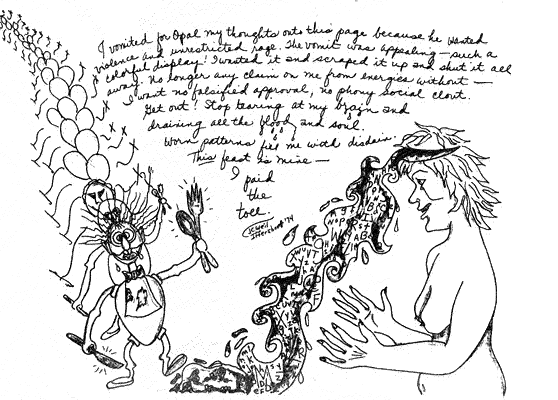 I vomited for Opal my thoughts onto this page because he wanted
violence and unrestricted rage. The vomit was appealing — such a
colorful display! I wasted it and scraped it up and shut it all
away. No longer any claim on me from energies without —
I want no falsified approval, no phony social clout.
Get out! Stop tearing at my brain and
draining all the blood and soul.
Worn patterns fill me with disdain.
This feast is mine —
I paid
the
toll.